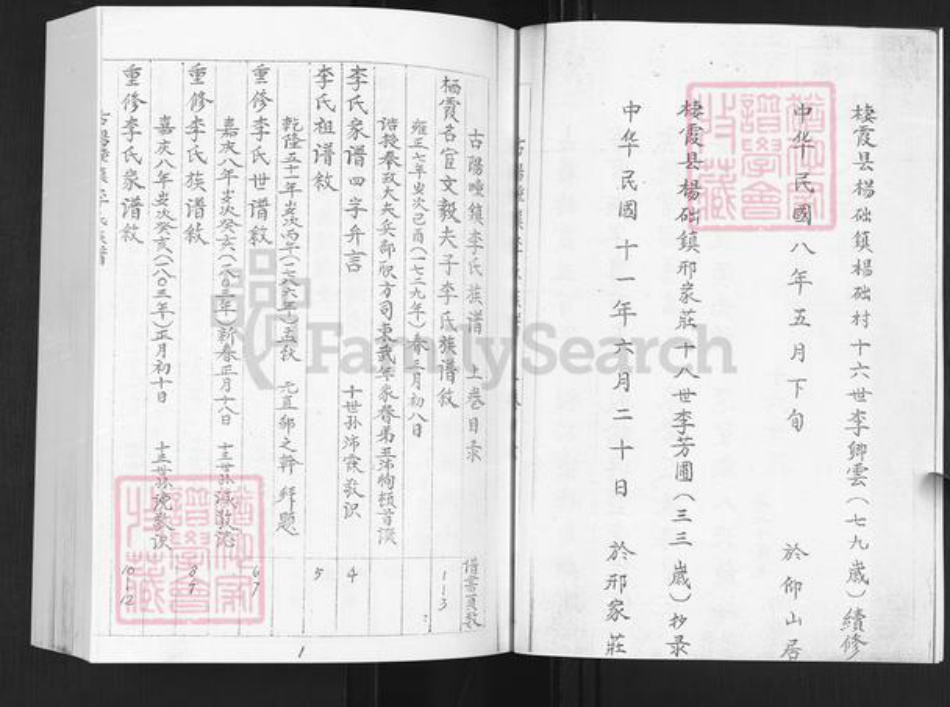 棲霞县楊础鎮楊础村十六世李卿雲（七九歲）續修
中华民國八年五月下旬 於仰山居
棲霞县楊础鎮邢家莊十八世李芳圃（三三歲）抄录
中华民國十一年六月二十日 於邢家莊
古陽疃鎮李氏族谱 上卷目录
谱書頁数
栖霞名宦文毅夫子李氏族谱敘
1-3
雍正七年岁次己酉（一七二九年）春三月初八日
诰授奉政大夫兵部职方司东武年家眷弟王沛恂頓首谟
李氏家谱四字弁言
十世孙沛霖敬识
4
李氏祖谱敘
5
乾隆五十一年岁次丙午（一七八六年）孟秋 元直 郝之幹 拜题
重修李氏世谱敘
6 7
嘉庆八年岁次癸亥（一八〇三年）新春正月十八日 十三世孙 敬識
重修李氏族谱敘
8 9
嘉庆八年岁次癸亥（一八〇三年）正月初十日 十三世孙 敬识
重修李氏家谱敘
10-12
1
FamilySearch